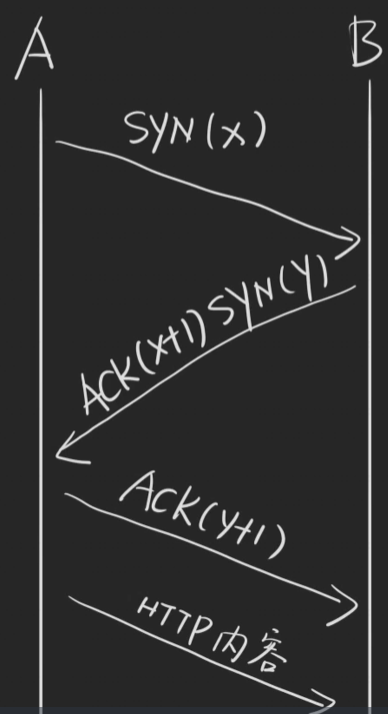 A
B
SYN(x)
ACK(x+1) SYN(Y)
ACK(y+1)
HTTP内容